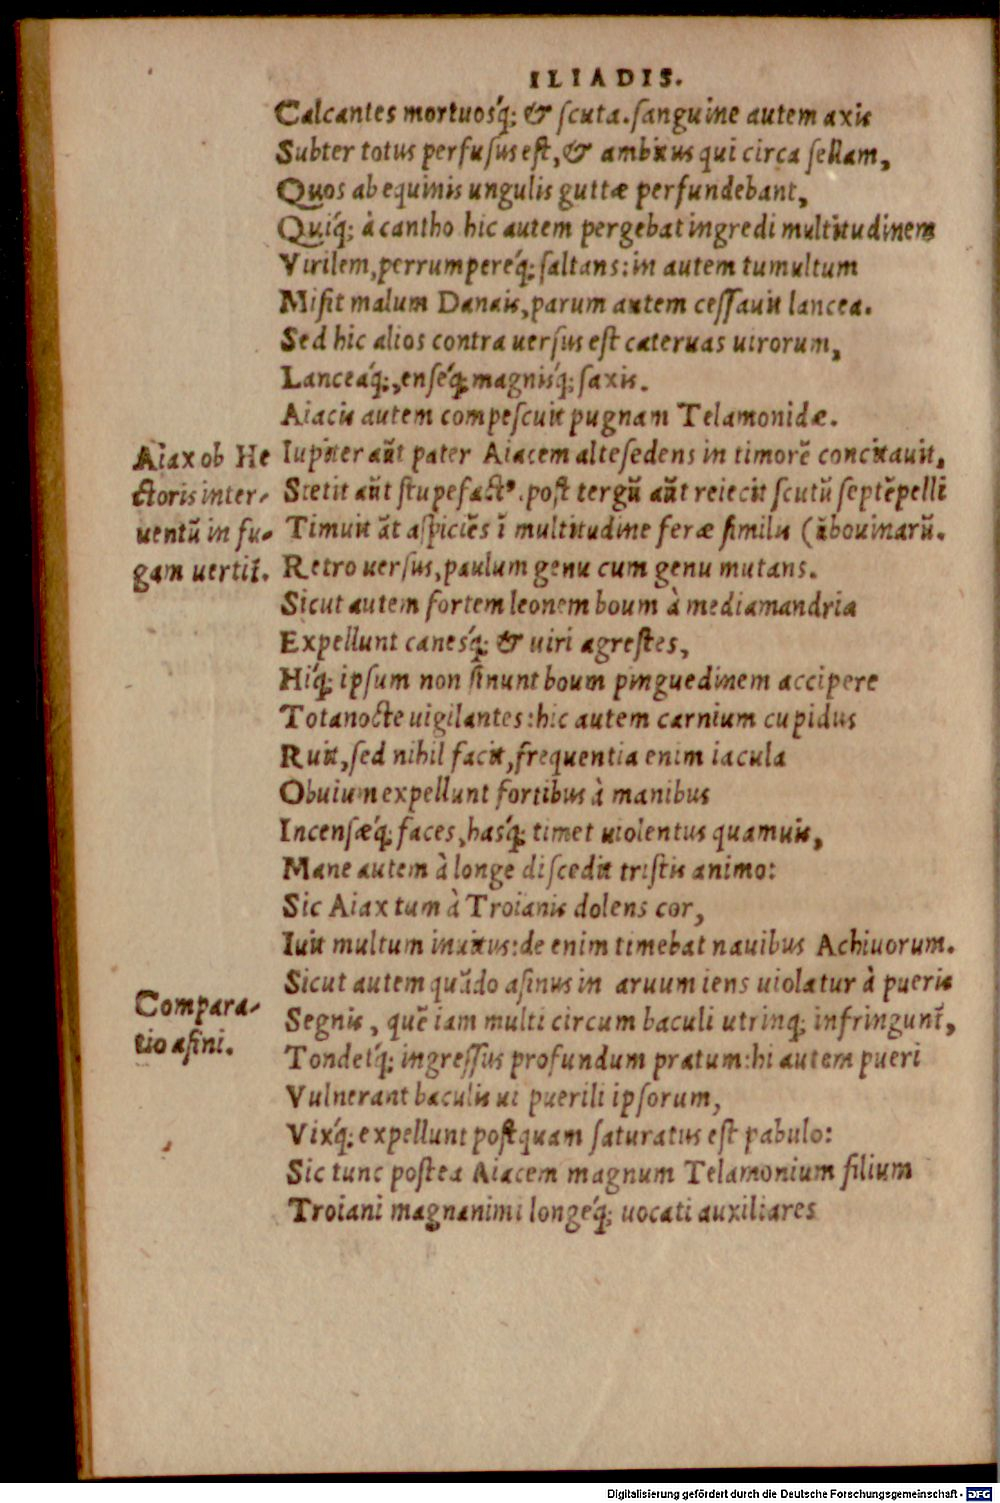 ILIADIS.
Calcantes mortuosq́; & ſcuta. ſanguine autem axis
Subter totus perfuſus eſt, & ambitus qui circa ſellam,
Quos ab equinis ungulis guttæ perfundebant,
Quiq́; à cantho hic autem pergebat ingredi multitudinem
Virilem, perrumpereq́; ſaltans: in autem tumultum
Miſit malum Danais, parum autem ceſſauit lancea.
Sed hic alios contra uerſus eſt cateruas uirorum,
Lanceaq́;, enſeq́; magnisq́; ſaxis.
Aiacis autem compeſcuit pugnam Telamonidæ.
Aiax ob He
ctoris inter-
uentũ in fu-
gam uertit.
Iupiter aũt pater Aiacem alte ſedens in timorẽ concitauit,
Stetit aũt ſtupefactꝰ. poſt tergũ aũt reiecit ſcutũ ſeptẽpelli
Timuit ãt aſpiciẽs ĩ multitudine feræ ſimilis (ũ bouinarũ.
Retro uerſus, paulum genu cum genu mutans.
Sicut autem fortem leonem boum à mediamandria
Expellunt canesq́; & uiri agreſtes,
Hiq́; ipſum non ſinunt boum pinguedinem accipere
Tota nocte uigilantes: hic autem carnium cupidus
Ruit, ſed nihil facit, frequentia enim iacula
Obuium expellunt fortibus à manibus
Incenſæq́; faces, hasq́; timet uiolentus quamuis,
Mane autem à longe diſcedit triſtis animo:
Sic Aiax tum à Troianis dolens cor,
Iuit multum inuitus: de enim timebat nauibus Achiuorum.
Compara-
tio aſini.
Sicut autem quãdo aſinus in aruum iens uiolatur à pueris
Segnis, quẽ iam multi circum baculi utrinq; infringunt,
Tondetq́; ingreſſus profundum pratum: hi autem pueri
Vulnerant baculis ui puerili ipſorum,
Vixq́; expellunt poſtquam ſaturatus eſt pabulo:
Sic tunc poſtea Aiacem magnum Telamonium filium
Troiani magnanimi longeq́; uocati auxiliares
Digitalisierung gefördert durch die Deutsche Forschungsgemeinschaft - DFG